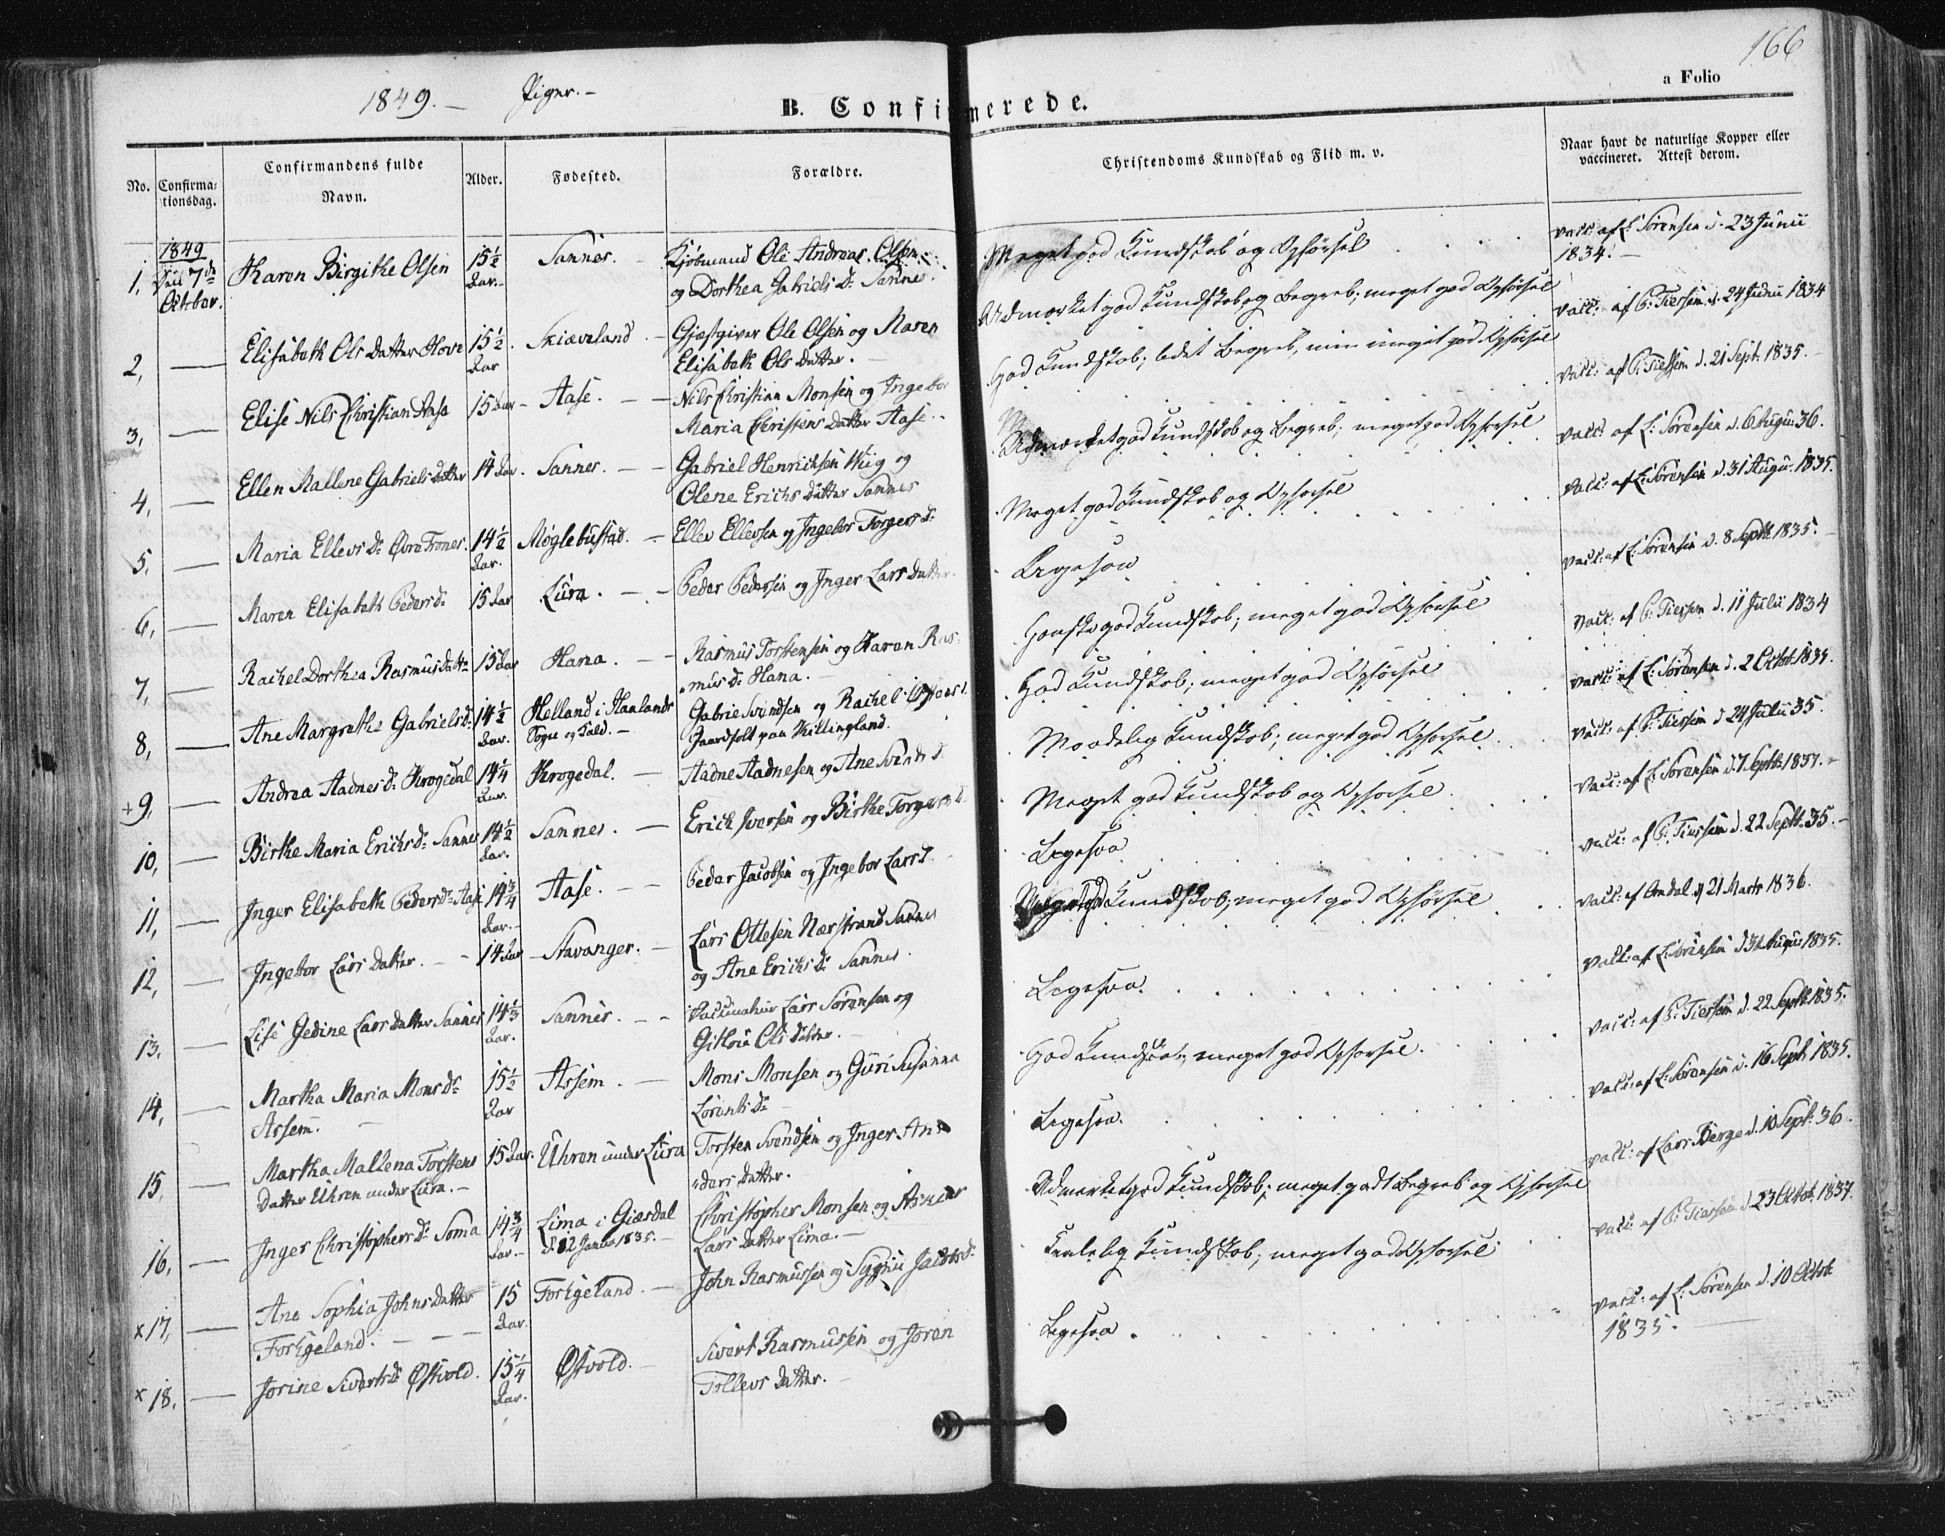 166
a Folio
1849. — Piger. —
B. Confirmerede.
No.
Confirma-
tionsdag.
Confirmandens fulde
Navn.
Alder.
Fødested.
Forældre.
Christendoms Kundskab og Flid m. v.
Naar havt de naturlige Kopper eller
vaccineret. Attest derom.
1849
Den 7de
October.
1, Karen Birgithe Olsen 15½ Aar. Sannes. Kjøbmand Ole Andreas Olsen
og Dorthea Gabriels D. Sannes. Meget god Kundskab og Opførsel vacc: af L: Sørensen d. 23 Junii
1834. —
2, — Elisabeth Ols Datter Hove 15½ Aar Skiæveland. — Gjæstgiver Ole Olsen og Maren
Elisabeth Ols Datter. — Udmærket god Kundskab og Begreb; meget god Opførsel vacc: af P: Tiersem d. 24 Junii 1834
3, — Elise Nils Christian Aase 15 Aar — Aase. — Nils Christian Monsen og Ingebor
Maria Christens Datter Aase. God Kundskab; Begreb, meget god Opførsel vacc: af P: Tiersem d. 21 Sept. 1835.
4, — Ellen Mallene Gabriels Datter 14 Aar. Sannes. — Gabriel Henrichsen Wiig og
Olene Erichs Datter Sannes Udmærket god Kundskab og Begreb; meget god Opførsel vacc: af L: Sørensen d. 6 Augu: 36.
5, — Maria Ellevs D. Øvre Trones. 14½ Aar. Møglebustad. — Ellev Ellevsen og Ingebor Torgers D. Meget god Kundskab og Opførsel vacc: af L: Sørensen d. 31 Augu: 1835.
6, — Maren Elisabeth Peders D. 15 Aar Lura. — Peder Pedersen og Inger Lars Datter. Ligesaa vacc: af L: Sørensen d. 8 Septb 1835.
7, — Rachel Dorthea Rasmus Datter 15 Aar Hana. — Rasmus Torstensen og Karen Ras-
mus D. Hana. — Ganske god Kundskab; meget god Opførsel vacc: af P: Tiersem d. 11 Julii 1834
8, — Ane Margrethe Gabriels D. 14½ Aar. Helland i Haalands
Sogn og Gield. — Gabriel Svendsen og Rachel
Gaardfolk paa Killingland. God Kundskab; meget god Opførsel vacc: af L: Sørensen d. 2 Octob 1835.
+ 9, — Andrea Aadnes D. Krogedal 14¼ Aar. Krogedal. — Aadne Aadnesen og Ane Svends D. Maadelig Kundskab; meget god Opførsel. vacc: af P: Tiersem d. 24 Julii 35.
10, — Birthe Maria Erichs D. Sannes 14½ Aar. Sannes. — Erich Iversen og Birthe Torgers D. Meget god Kundskab og Opførsel vacc: af L: Sørensen d. 7 Septb 1837.
11, — Inger Elisabeth Peders D. Aase 14¾ Aar. Aase. — Peder Jacobsen og Ingebor Lars D. Ligesaa vacc: af P: Tiersem d. 22 Septb. 35.
12, — Ingebor Lars Datter. — 14 Aar Stavanger. — Lars Ottesen Nærstrand Sannes
og Ane Erichs D. Sannes. Kundskab; meget god Opførsel vacc: af d. 21 Marts 1836.
13, — Lise Gedine Lars Datter Sannes 14⅓ Aar. Sannes. — Vaccinateur Lars Sørensen og
Ols Datter. — Ligesaa. vacc: af L: Sørensen d. 31 Augu: 1835.
14, — Martha Maria Mons D.
Assem. 15½ Aar Assem. — Mons Monsen og Guri Susanna
Lorents D. — God Kundskab, meget god Opførsel. vacc: af P: Tiersem d. 22 Septb 1835.
15, — Martha Mallena Torstens
Datter Uhren under Lura. — 15 Aar. Uhren under Lura Torsten Svendsen og Inger An-
ders Datter. Ligesaa. vacc: af L: Sørensen d. 16 Septb 1835.
16, — Inger Christophers D. Soma 14¾ Aar. — Lima i Giæsdal
d. 12 Janua 1835. — Christopher Monsen og
Lars Datter Lima. — Udmærket god Kundskab; meget godt Begreb og Opførsel vacc: af Lars Berge d. 10 Sept. 36.
x 17, — Ane Sophia Johns Datter
Forkgeland. — 15 Aar. Forkgeland. — John Rasmussen og Sygni Jacobs D. Kundskab; meget god Opførsel vacc: af P: Tiersem d. 23 Octob. 1837.
x 18, — Jorine Siverts D. Østvold. 15¼ Aar. Østvold. — Sivert Rasmussen og Joren
Tollevs Datter. — Ligesaa. vacc: af L: Sørensen d. 10 Octob
1835. —